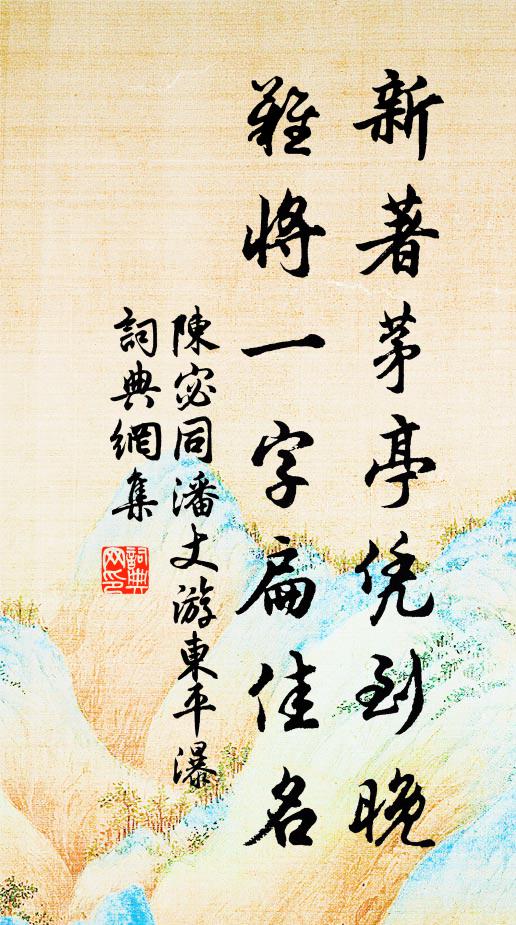 新著茅亭凭到晚
難將一字扁佳名
陳宓同潘丈游東平瀑
詞典網集
詞典网印